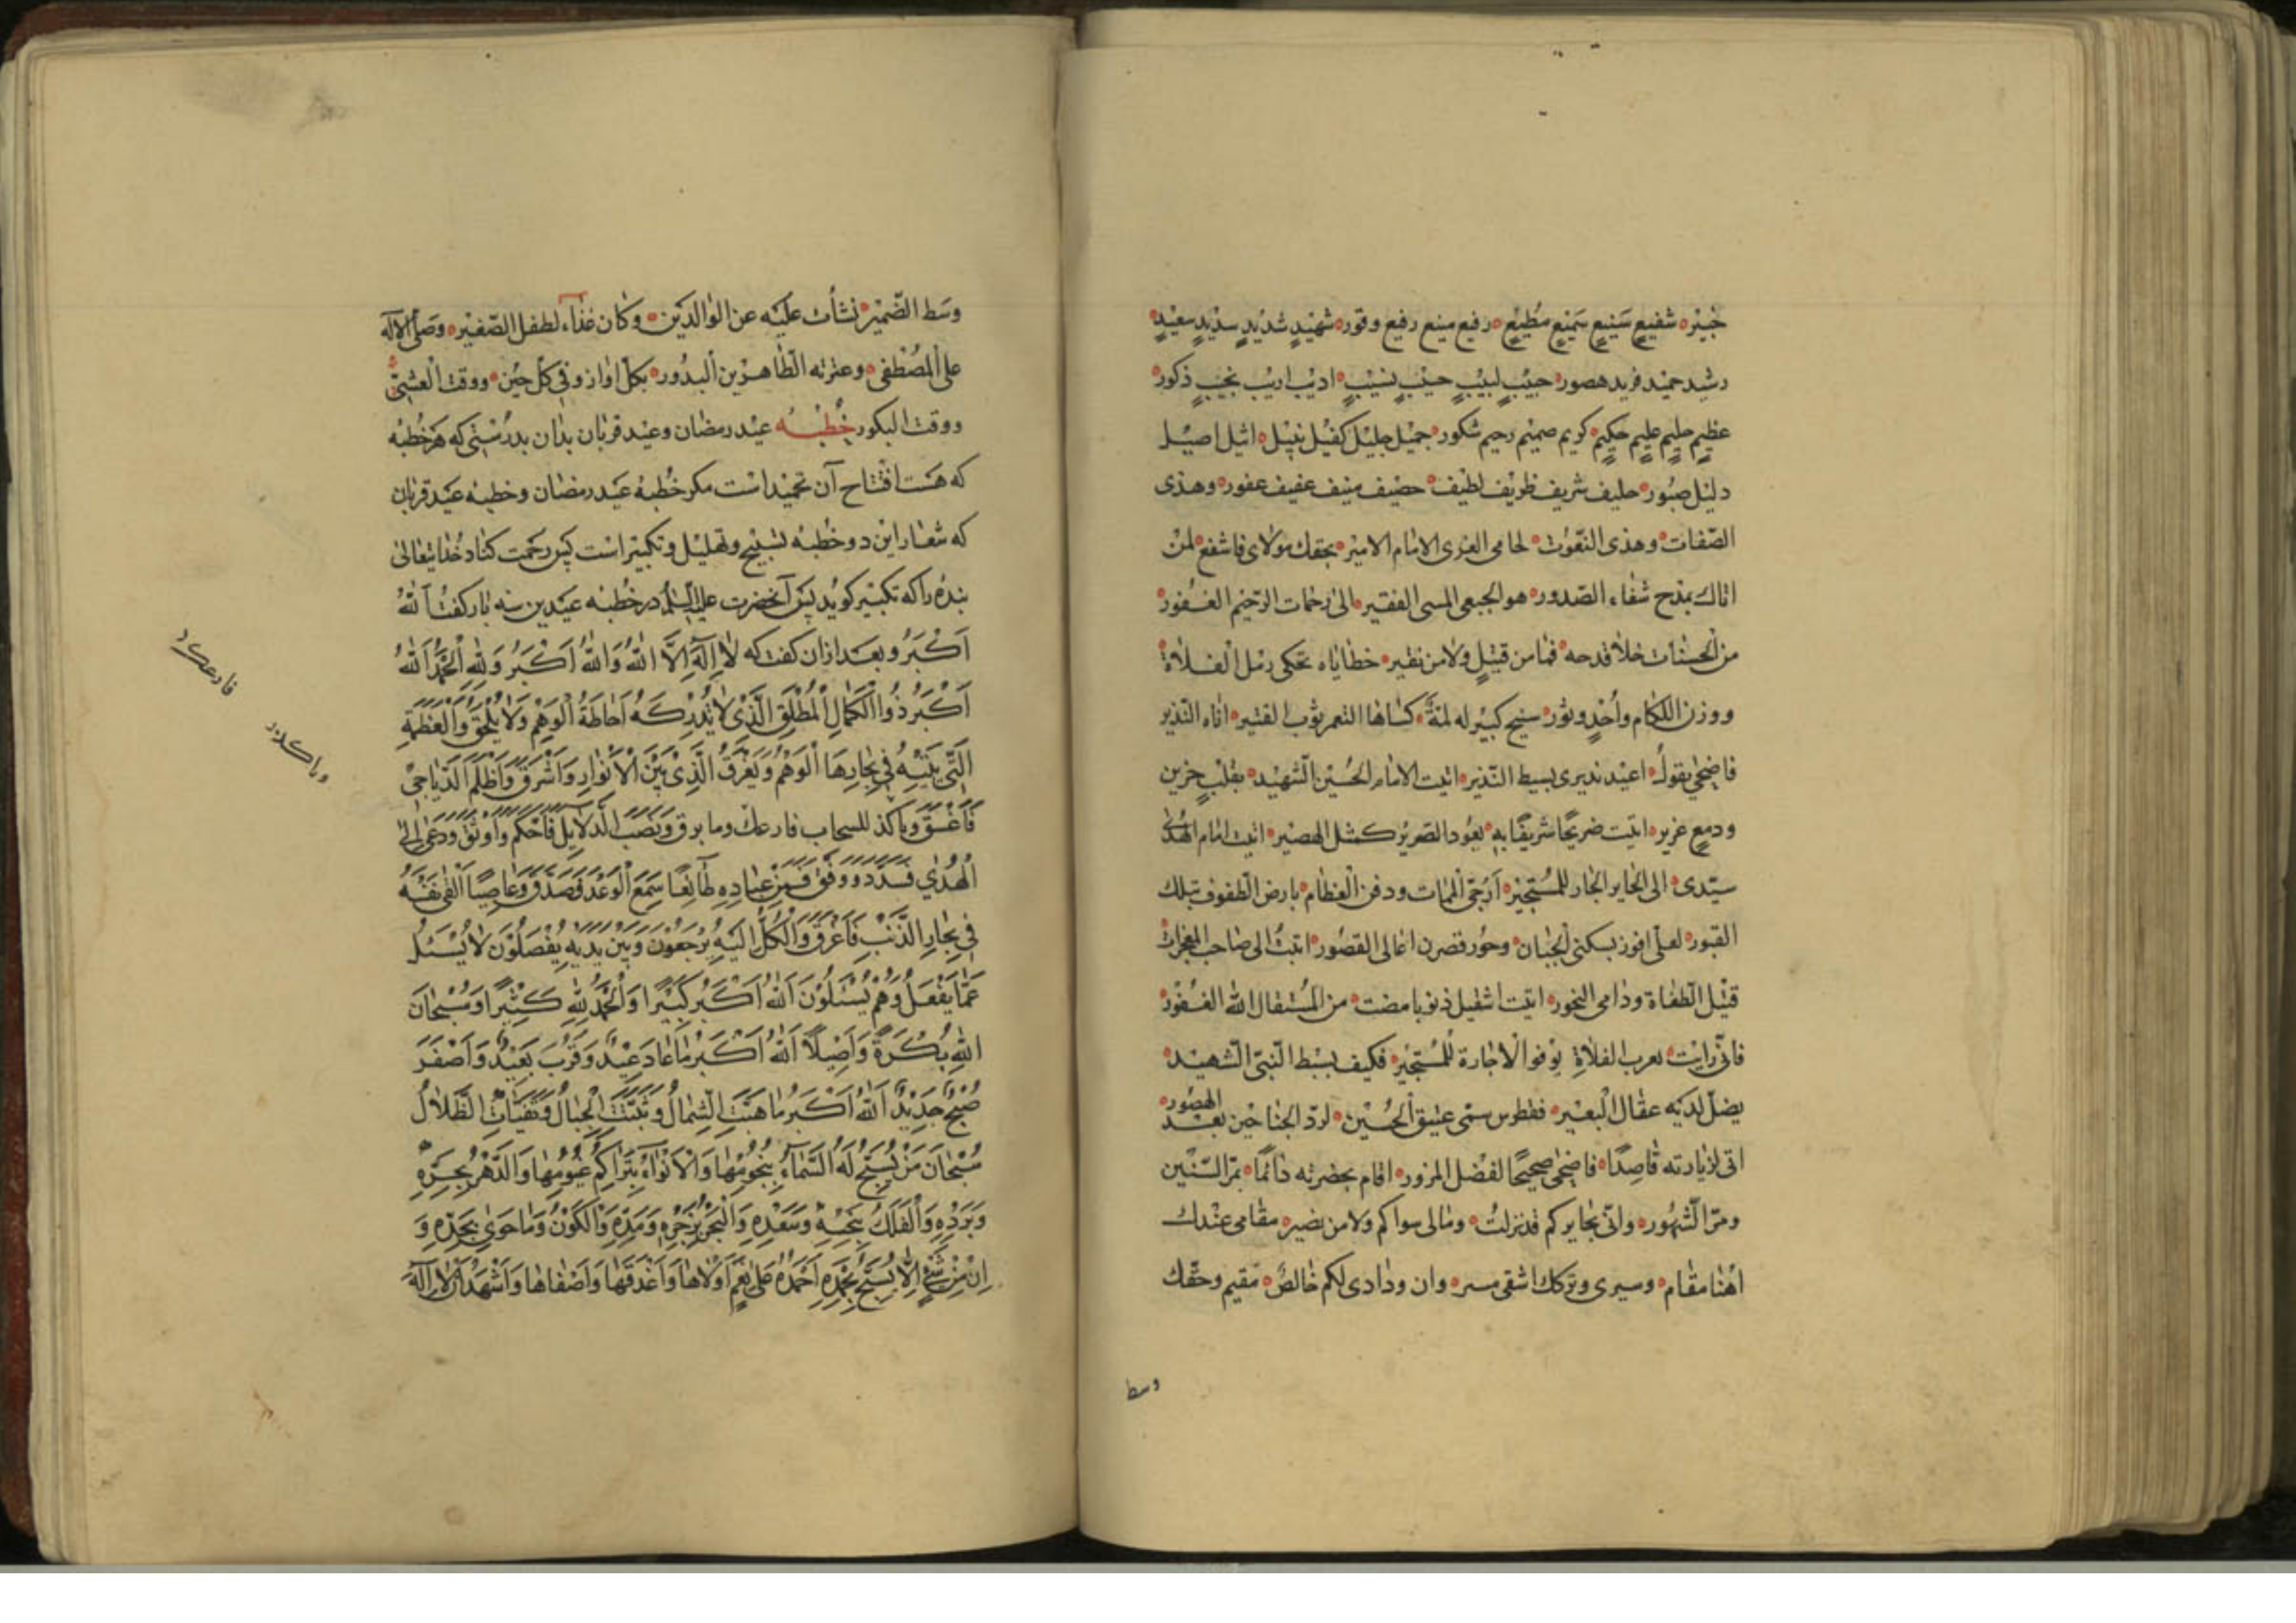 خبير شفيع سنيع سميع مطيع رفيع منيع رفيع وقور شهيد شديد سديد سعيد
رشيد حميد فريد هصور حبيب لبيب حسيب نسيب اديب اريب نجيب ذكور
عظيم حليم عليم حكيم كريم صميم رحيم شكور جميل جليل كفيل نبيل اثيل اصيل
دليل صبور حليف شريف ظريف لطيف حصيف منيف عفيف غفور وهذى
الصفات وهذى النعوت لحامى الغرى الامام الامير بحقك مولاى فاشفع لمن
اتاك بمدح شفاء الصدور هو الجبعى المسى الفقير الى رحمات الرحيم الغفور
من الحسنات خلا قدحه فما من قتيل ولا من نقير خطاياه تحكى رمل الفلاة
ووزن اللكام واحد وثور سنيح كبير له لمة كساها التعمر ثوب القتير اتاه النذير
فاضحى يقول اعيد نديرى بسيط النذير اتيت الامام الحسين الشهيد بقلب حزين
ودمع غزير اتيت ضريحا شريفا به يعود الضرير كمثل البصير اتيت امام الهدى
سيدى الى الحاير الجار للمستجير ارجى الممات ودفن العظام بارض الطفوف بتلك
القبور لعلى افوز بسكنى الجنان وحور قصرن اعالى القصور اتيت الى صاحب المعجزات
قتيل الطغاة ودامى النحور اتيت اثقيل ذنوبا مضت من المستقال الله الغفور
فانى رايت عرب الفلاة يوفوا الاجارة للمستجير فكيف بسبط النبى الشهيد
يضل لديه عقال البعير ففطرس سمى عتيق الحسين لرد الجناحين بعد الهصور
اتى لزيارته قاصدا فاضحى صحيحا لفضل المزور اقام بحضرته دائما بمر السنين
ومر الشهور وانى بحايركم قد نزلت ومالى سواكم ولا من نصير مقامى عندك
اهنا مقام وسيرى وتركك اشقى مسير وان ودادى لكم خالص مقيم وحقك
وسط
وَسَط الضّمير نشأت عليه عن الوالدين وكان غذاء لطفل الصّغير وصلى الاله
على المصطفى وعترته الطاهرين البدور بكل اوان وفى كل حين ووقت العشىّ
ووقت البكور خطبه عيد رمضان وعيد قربان بدان بدرستى كه هر خطبه
كه هست افتتاح آن تحميد است مكر خطبه عيد رمضان وخطبه عيد قربان
كه شعار اين دو خطبه تسبيح وتهليل وتكبير است پس رحمت كناد خدايتعالى
بنده را كه تكبير كويد پس آنحضرت عليه السلام در خطبه عيدين سه بار كفت اَللّٰهُ
اَكْبَرُ وبعد ازان كفت كه لا اِلٰهَ اِلَّا اللّٰهُ وَاللّٰهُ اَكْبَرُ وَلِلّٰهِ الْحَمْدُ اَللّٰهُ
اَكْبَرُ ذُوا الْكَمَالِ الْمُطْلَقِ الَّذِى لا تُدْرِكُهُ اَحَاطَةُ الْوَهْمِ وَلا يُلْحَقُ وَالْعَظَمَةِ
الَّتِى يَتِيهُ فِى بِحَارِهَا الْوَهْمُ وَيَغْرَقُ الَّذِى بَيَّنَ الْاَنْوَارِ وَاَشْرَقَ وَاَظْلَمَ الدَّيَاجِىَ
فَاَغْسَقَ وباكذ للسحاب فارعك وما برق وَنَصَبَ الدَّلايِلَ فَاَحْكَمَ وَاَوْثَقَ وَدَعَى اِلَى
الْهُدٰى فَسَدَّدَ وَوَفَّقَ فَمِنْ عِبَادِهِ طَائِعًا سَمِعَ الْوَعْدَ فَصَدَّقَ وَعَاصِيًا اَلْقَى نَفْسَهُ
فِى بِحَارِ الذَّنْبِ فَاَغْرَقَ وَالْكُلُّ اِلَيْهِ يُرْجَعُونَ وَبَيْنَ يَدَيْهِ يُفْصَلُونَ لا يُسْئَلُ
عَمَّا يَفْعَلُ وَهُمْ يُسْئَلُونَ اَللّٰهُ اَكْبَرُ كَبِيرًا وَالْحَمْدُ لِلّٰهِ كَثِيرًا وَسُبْحَانَ
اللّٰهِ بُكْرَةً وَاَصِيلًا اَللّٰهُ اَكْبَرُ مَا عَادَ عِيدٌ وَقَرُبَ بَعِيدٌ وَاَصْفَرَ
صُبْحٌ جَدِيدٌ اَللّٰهُ اَكْبَرُ مَا هَبَّتِ الشِّمَالُ وَثَبَتَتِ الْجِبَالُ وَتَفَيَّاَتِ الظِّلالُ
سُبْحَانَ مَنْ يُسَبِّحُ لَهُ السَّمَآءُ بِنُجُومِهَا وَالْاَنْوَاءُ بِتَرَاكُمِ غُيُومِهَا وَالدَّهْرُ بِحَرِّهِ
وَبَرْدِهِ وَالْفَلَكُ بِنَحْسِهِ وَسَعْدِهِ وَالْبَحْرُ بِزَجْرِهِ وَمَدِّهِ وَالْكَوْنُ وَمَا حَوٰى بِحَدِّهِ وَ
اِنْ مِنْ شَىْءٍ اِلَّا يُسَبِّحُ بِحَمْدِهِ اَحْمَدُهُ عَلٰى نِعَمٍ اَوْلاهَا وَاَغْدَقَهَا وَاَضْفَاهَا وَاَشْهَدُ اَنْ لا اِلٰهَ